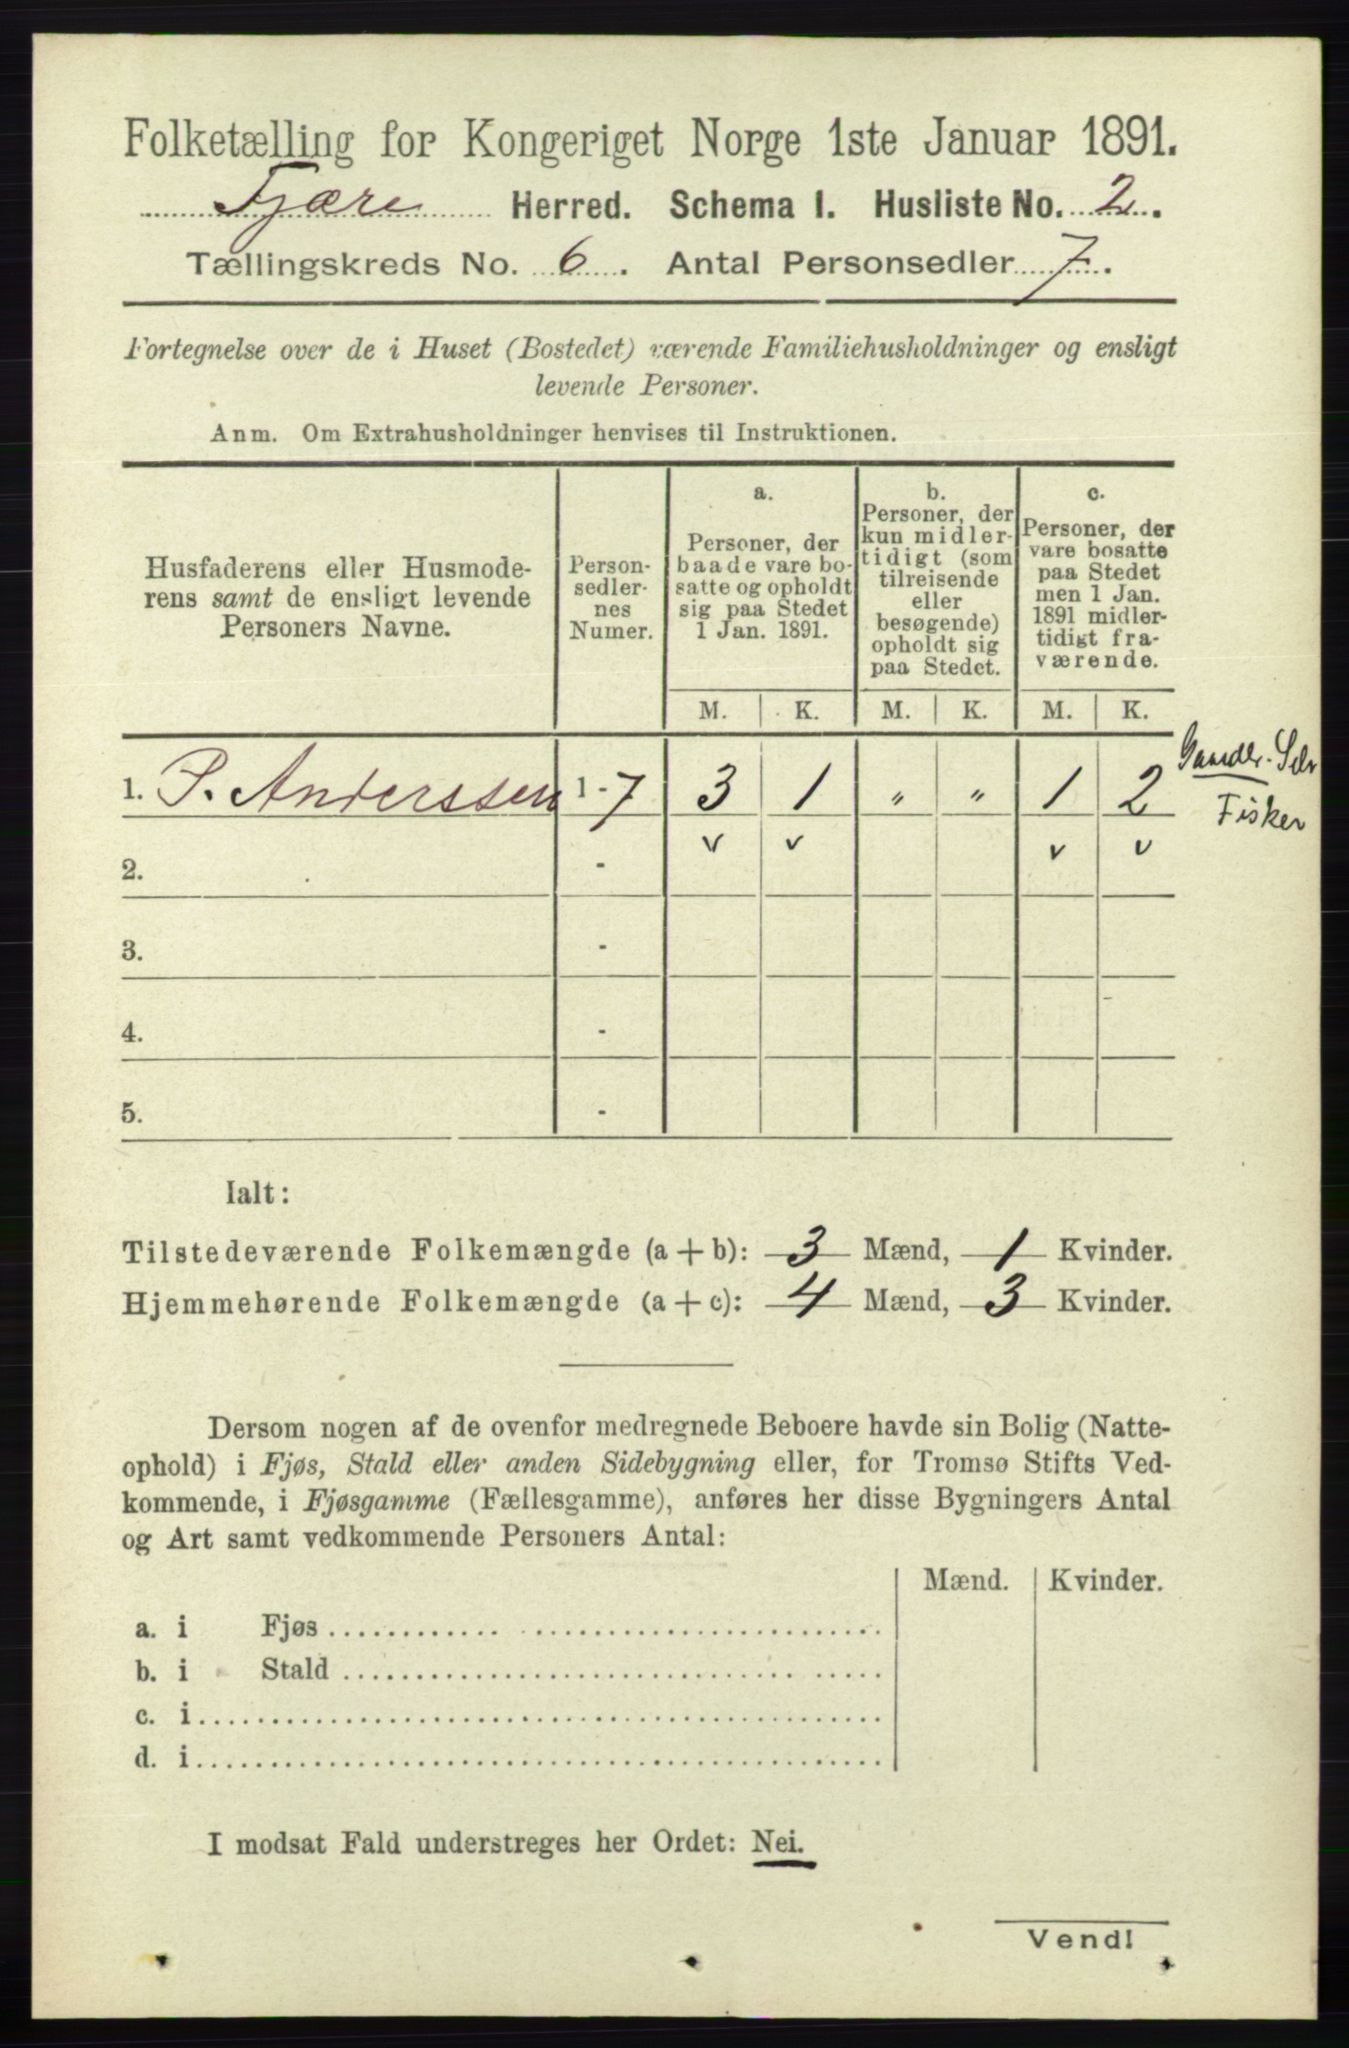 Folketælling for Kongeriget Norge 1ste Januar 1891.
Fjære Herred. Schema I. Husliste No. 2.
Tællingskreds No. 6. Antal Personsedler 7.
Fortegnelse over de i Huset (Bostedet) værende Familiehusholdninger og ensligt
levende Personer.
Anm. Om Extrahusholdninger henvises til Instruktionen.
Husfaderens eller Husmode-
rens samt de ensligt levende
Personers Navne.
Person-
sedler-
nes
Numer.
a.
Personer, der
baade vare bo-
satte og opholdt
sig paa Stedet
1 Jan. 1891.
b.
Personer, der
kun midler-
tidigt (som
tilreisende
eller
besøgende)
opholdt sig
paa Stedet.
c.
Personer, der
vare bosatte
paa Stedet
men 1 Jan.
1891 midler-
tidigt fra-
værende.
M. K. M. K. M. K.
1. P. Anderssen 1-7 3 1 " " 1 2
Fisker
v v v v
2. -
3. -
4. -
5. -
Ialt:
Tilstedeværende Folkemængde (a + b): 3 Mænd, 1 Kvinder.
Hjemmehørende Folkemængde (a + c): 4 Mænd, 3 Kvinder.
Dersom nogen af de ovenfor medregnede Beboere havde sin Bolig (Natte-
ophold) i Fjøs, Stald eller anden Sidebygning eller, for Tromsø Stifts Ved-
kommende, i Fjøsgamme (Fællesgamme), anføres her disse Bygningers Antal
og Art samt vedkommende Personers Antal:
Mænd. Kvinder.
a. i Fjøs
b. i Stald
c. i
d. i
I modsat Fald understreges her Ordet: Nei.
Vend!